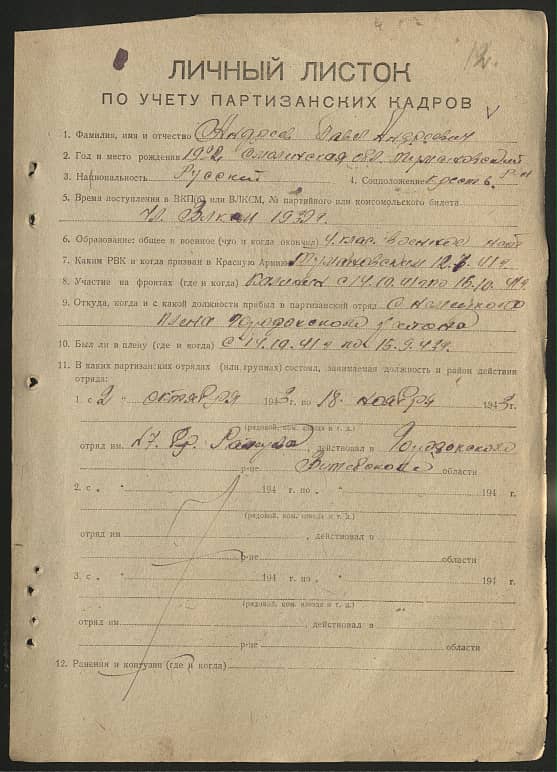 12.
ЛИЧНЫЙ ЛИСТОК
ПО УЧЕТУ ПАРТИЗАНСКИХ КАДРОВ
1. Фамилия, имя и отчество Павел Андреевич
2. Год и место рождения Смоленская обл.
3. Национальность Русский 4. Соцположение крестьян. р-н
5. Время поступления в ВКП(б) или ВЛКСМ, № партийного или комсомольского билета
Чл. ВЛКСМ
6. Образование: общее и военное (что и когда окончил) 4 клас. военное нет
7. Каким РВК и когда призван в Красную Армию 12.7.41 г.
8. Участие на фронтах (где и когда) с 14.10.41 по 15.10.41 г.
9. Откуда, когда и с какой должности прибыл в партизанский отряд С немецкого
плена Городокского района
10. Был ли в плену (где и когда) С 14.10.41 г. по 15.9.43 г.
11. В каких партизанских отрядах (или группах) состоял, занимаемая должность и район действия
отряда:
1. с 2 " октября 1943 г. по 18. ноября 1943 г.
(рядовой, ком. взвода и т. д.)
отряд им. , действовал в Городокского
р-не Витебской области
2. с " " 194 г. по " " 194 г.
(рядовой, ком. взвода и т. д.)
отряд им , действовал в
р-не области
3. с " " 194 г. по " " 194 г.
(рядовой, ком. взвода и т. д.)
отряд им , действовал в
р-не области
12. Ранения и контузии (где и когда)